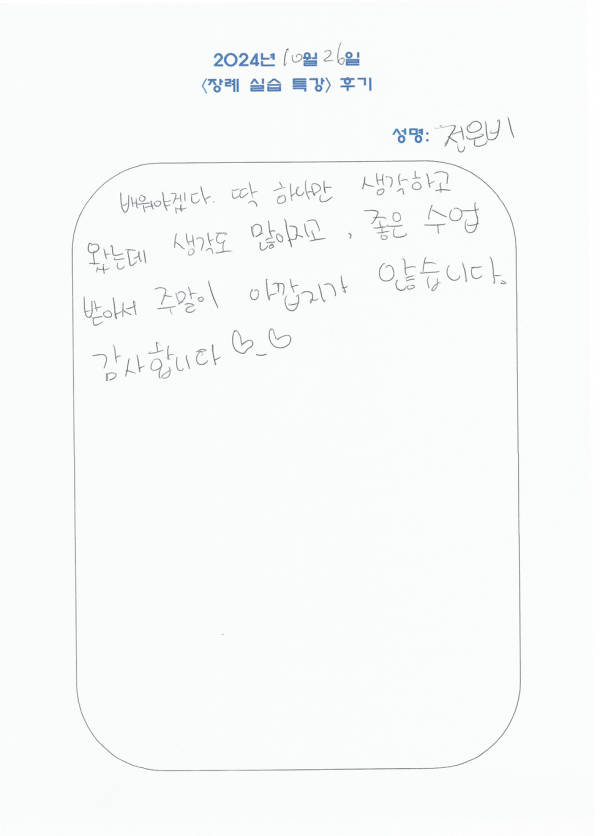 2024년 10월 26일
<장례 실습 특강> 후기
성명: 전은비
배워야겠다. 딱 하나만 생각하고
왔는데 생각도 많아지고, 좋은 수업
받아서 주말이 아깝지가 않습니다.
감사합니다 ♡_♡